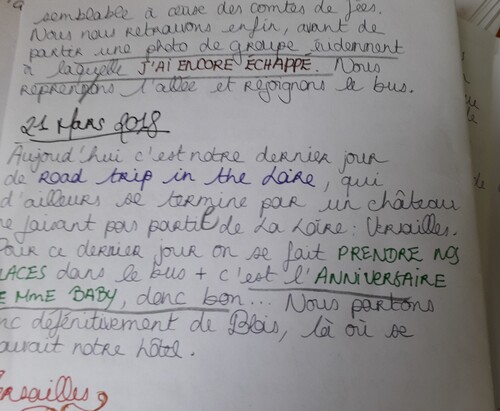 semblable à cause des comtes de fées.
Nous nous retrouvons enfin, avant de
partir une photo de groupe évidemment
à laquelle J'AI ENCORE ÉCHAPPÉ. Nous
reprenons l'allée et rejoignons le bus.
21 MARS 2018
Aujourd'hui c'est notre dernier jour
de road trip in the Loire, qui
d'ailleurs se termine par un château
ne faisant pas partie de La Loire : Versailles.
Pour ce dernier jour on se fait PRENDRE NOS
LACES dans le bus + c'est l'ANNIVERSAIRE
E MME BABY, donc bon... Nous partons
nc définitivement de Blois, là où se
ouvait notre hôtel.
ersailles